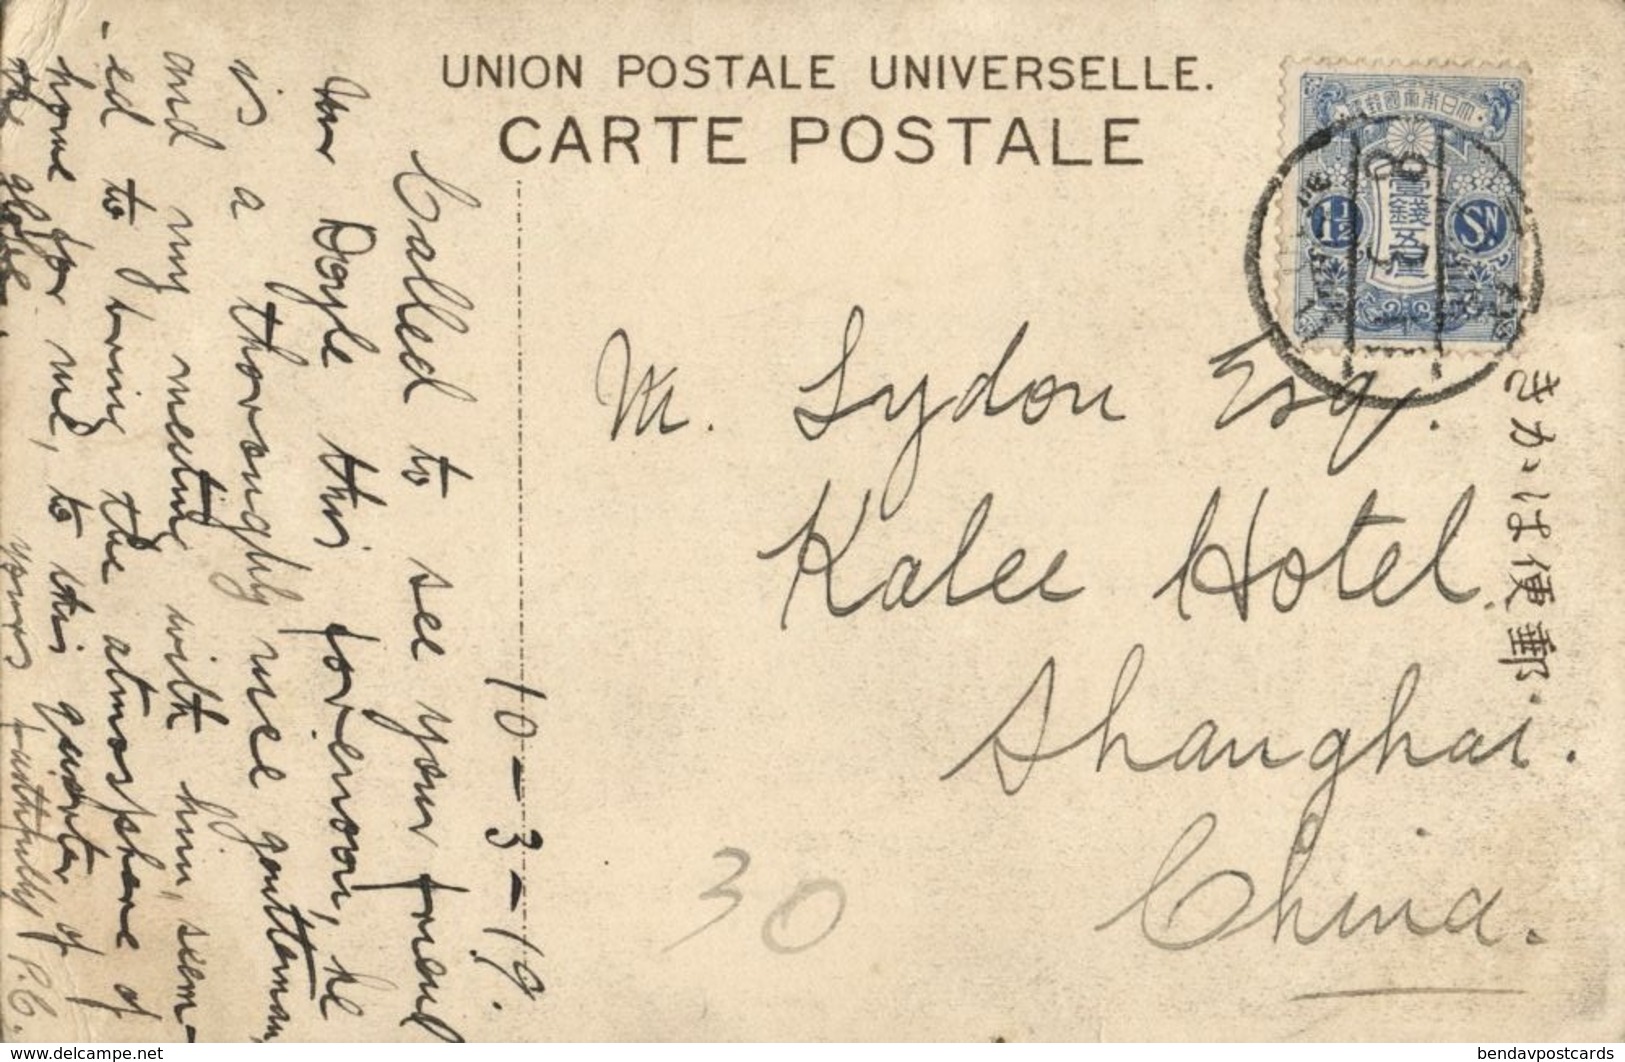 UNION POSTALE UNIVERSELLE.
CARTE POSTALE
大日本帝國郵便
壹錢五厘
1½
SN
きかは便郵
M. Lydon Esq.
Kalee Hotel
Shanghai.
China.
30
10-3-19.
Called to see your friend
Mr Doyle this forenoon, he
is a thoroughly nice gentleman,
and my meeting with him, seem-
-ed to bring the atmosphere of
home for me, to this quarter of
the globe.
yours faithfully P.C.
bendavpostcards